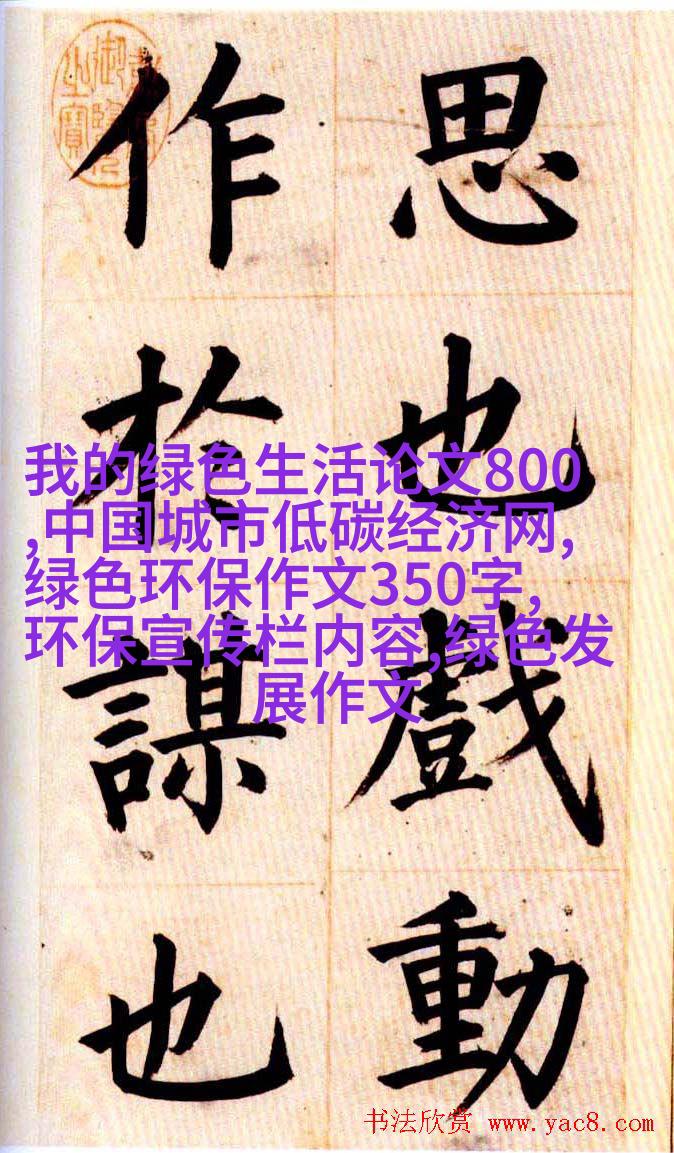 思也戲動
作於謀也
我的绿色生活论文800
,中国城市低碳经济网,
绿色环保作文350字,
环保宣传栏内容,绿色发
展作文
书法欣赏 www.yac8.com